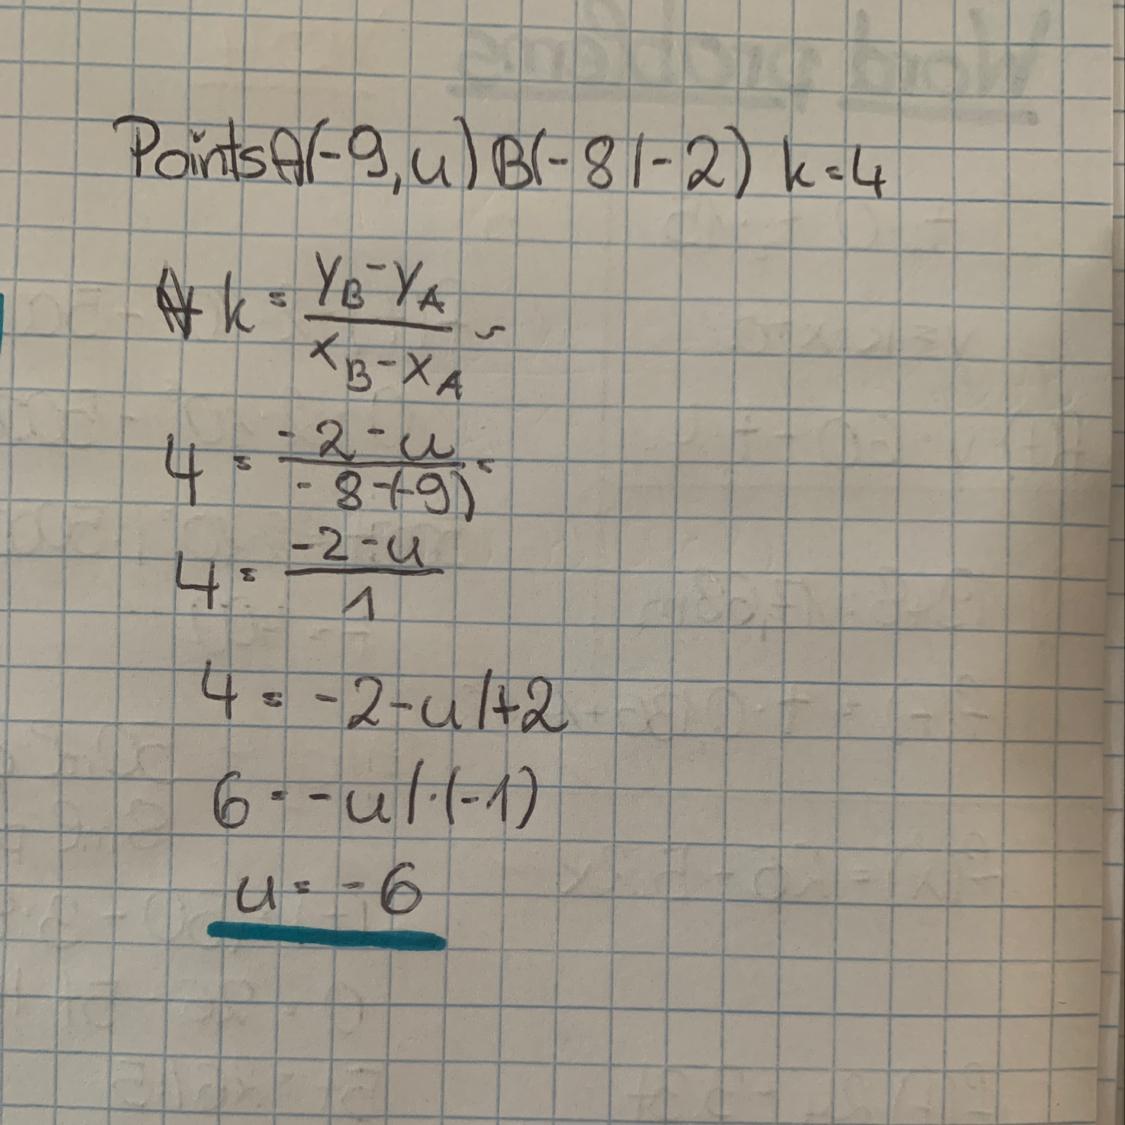 Points A(-9, u) B(-8/-2) k=4
k = (y_B - y_A)/(x_B - x_A) =
4 = (-2-u)/(-8-(-9)) =
4 = (-2-u)/1
4 = -2-u /+2
6 = -u /·(-1)
u = -6